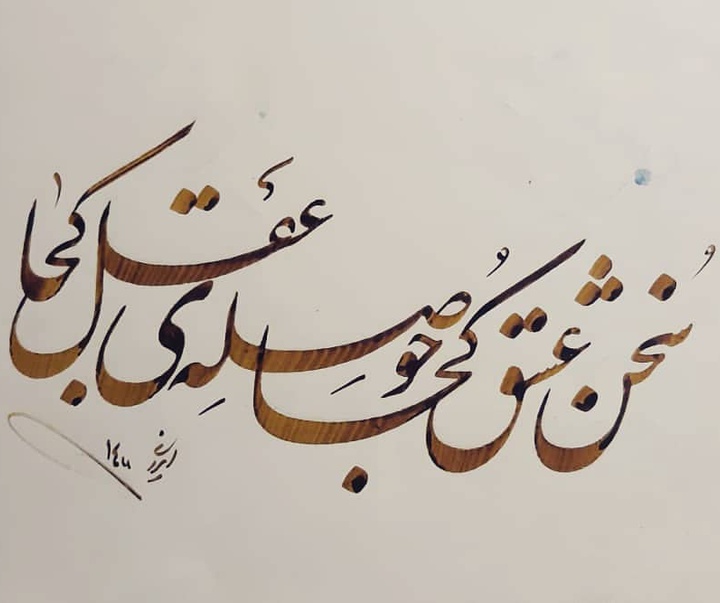 سُخن عشق کُجا حوصلهِ‌ی عَقل کُجا